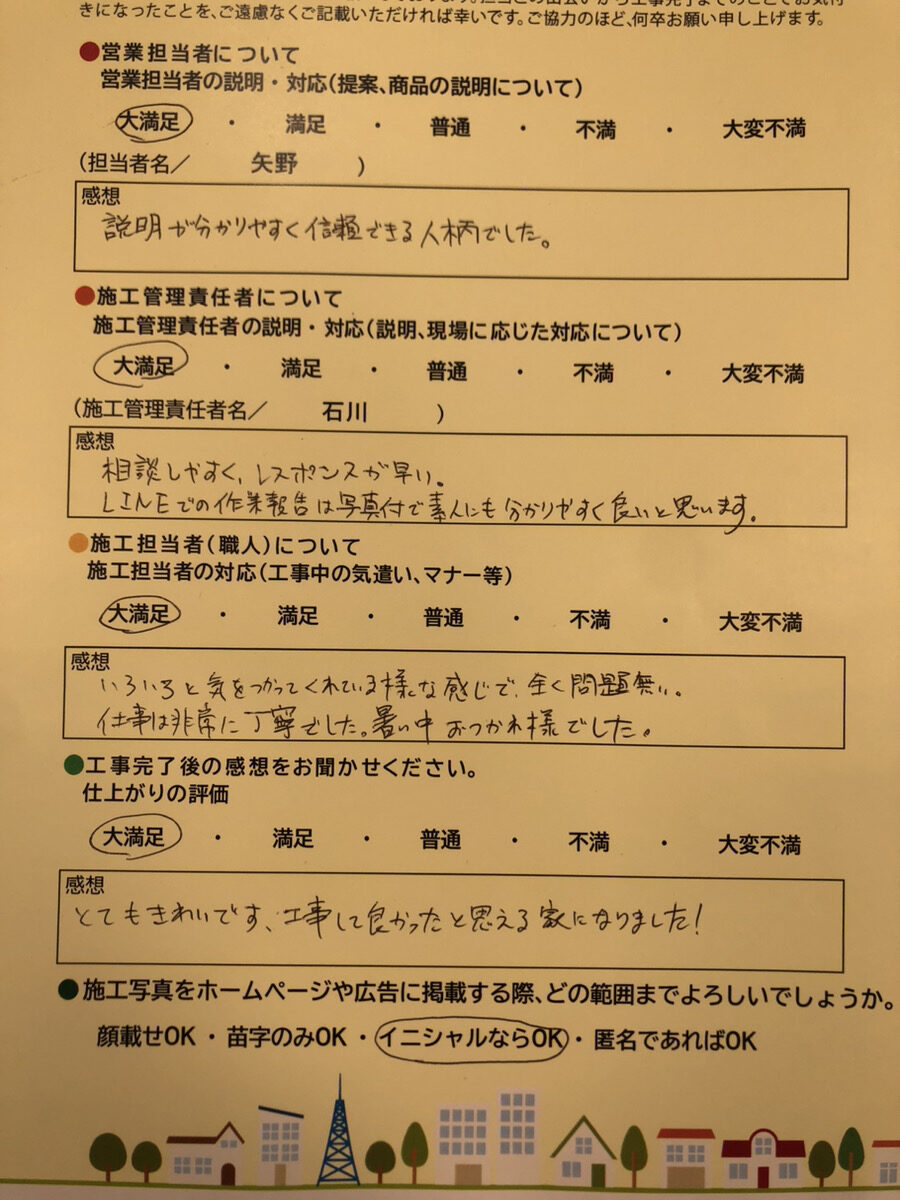 きになったことを、ご遠慮なくご記載いただければ幸いです。ご協力のほど、何卒お願い申し上げます。
●営業担当者について
営業担当者の説明・対応(提案、商品の説明について)
大満足 ・ 満足 ・ 普通 ・ 不満 ・ 大変不満
(担当者名/ 矢野 )
感想
説明が分かりやすく信頼できる人柄でした。
●施工管理責任者について
施工管理責任者の説明・対応(説明、現場に応じた対応について)
大満足 ・ 満足 ・ 普通 ・ 不満 ・ 大変不満
(施工管理責任者名/ 石川 )
感想
相談しやすく、レスポンスが早い。
LINEでの作業報告は写真付で素人にも分かりやすく良いと思います。
●施工担当者(職人)について
施工担当者の対応(工事中の気遣い、マナー等)
大満足 ・ 満足 ・ 普通 ・ 不満 ・ 大変不満
感想
いろいろと気をつかってくれている様な感じで、全く問題無い。
仕事は非常に丁寧でした。暑い中おつかれ様でした。
●工事完了後の感想をお聞かせください。
仕上がりの評価
大満足 ・ 満足 ・ 普通 ・ 不満 ・ 大変不満
感想
とてもきれいです、工事して良かったと思える家になりました!
●施工写真をホームページや広告に掲載する際、どの範囲までよろしいでしょうか。
顔載せOK ・ 苗字のみOK ・ イニシャルならOK ・ 匿名であればOK